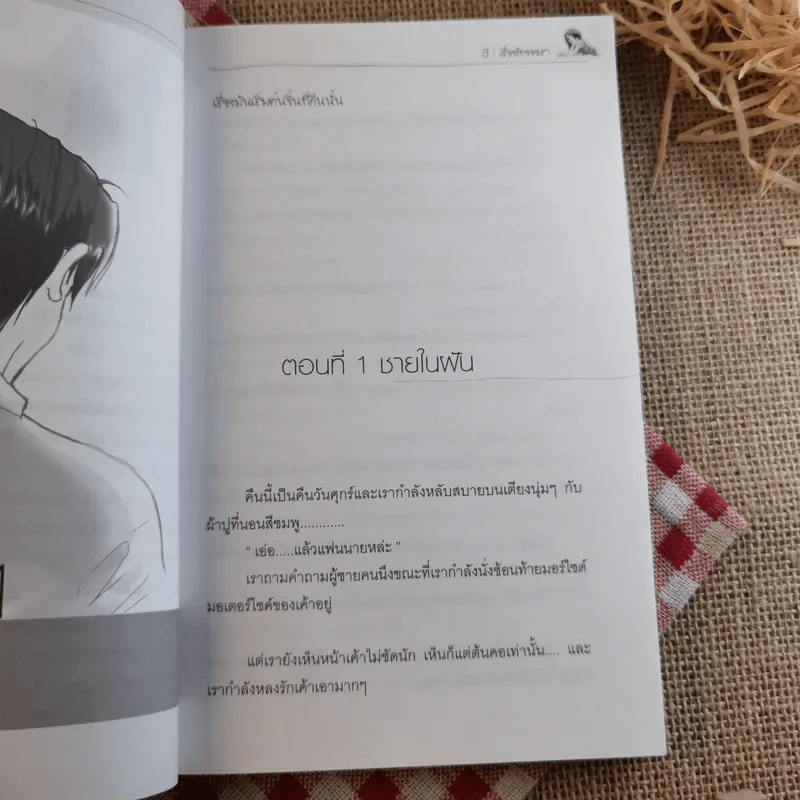 เรื่องมันเริ่มต้นขึ้นที่คืนนั้น
ตอนที่ 1 ชายในฝัน
คืนนี้เป็นคืนวันศุกร์และเรากำลังหลับสบายบนเตียงนุ่มๆ กับ
ผ้าปูที่นอนสีชมพู............
" เอ่อ.....แล้วแฟนนายหล่ะ "
เราถามคำถามผู้ชายคนนึงขณะที่เรากำลังนั่งซ้อนท้ายมอร์ไซด์
มอเตอร์ไซค์ของเค้าอยู่
แต่เรายังเห็นหน้าเค้าไม่ชัดนัก เห็นก็แต่ต้นคอเท่านั้น.... และ
เรากำลังหลงรักเค้าเอามากๆ